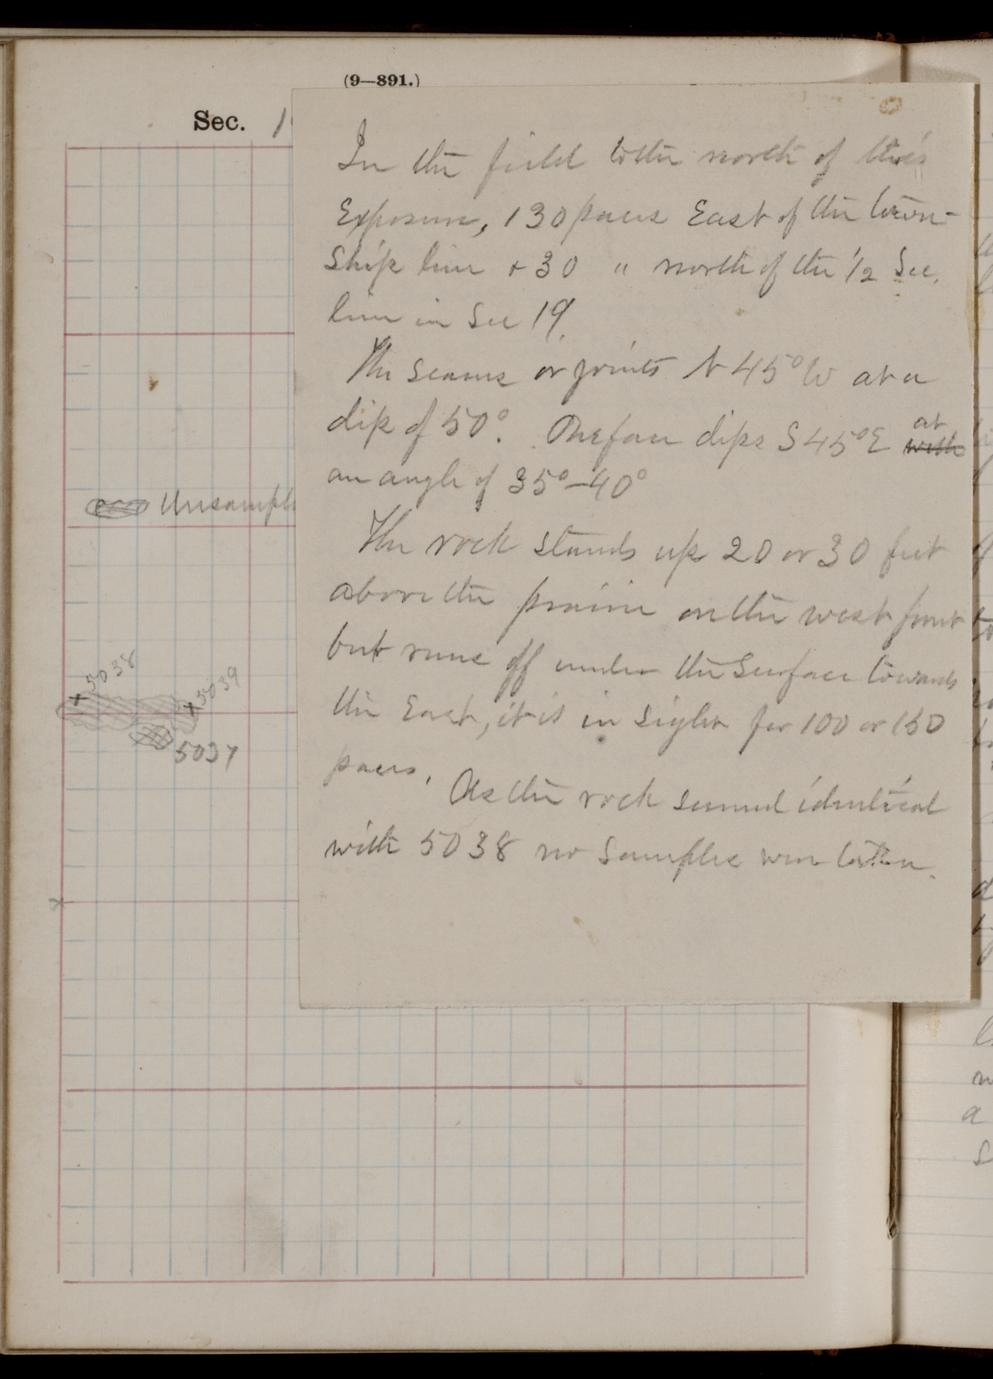 (9—891.)
Sec. 1
In the field to the north of this
Exposure, 130 paces East of the town-
Ship line + 30 " north of the ½ Sec.
line in Sec 19.
The seams or joints N 45° W at a
dip of 50°. One face dips S 45° E at with
an angle of 35°–40°
The rock stands up 20 or 30 feet
above the prairie on the west front
but runs off under the surface towards
the East, it is in sight for 100 or 150
paces.
As the rock seemed identical
with 5038 no samples were taken.
Unsampl
5038
5039
5037